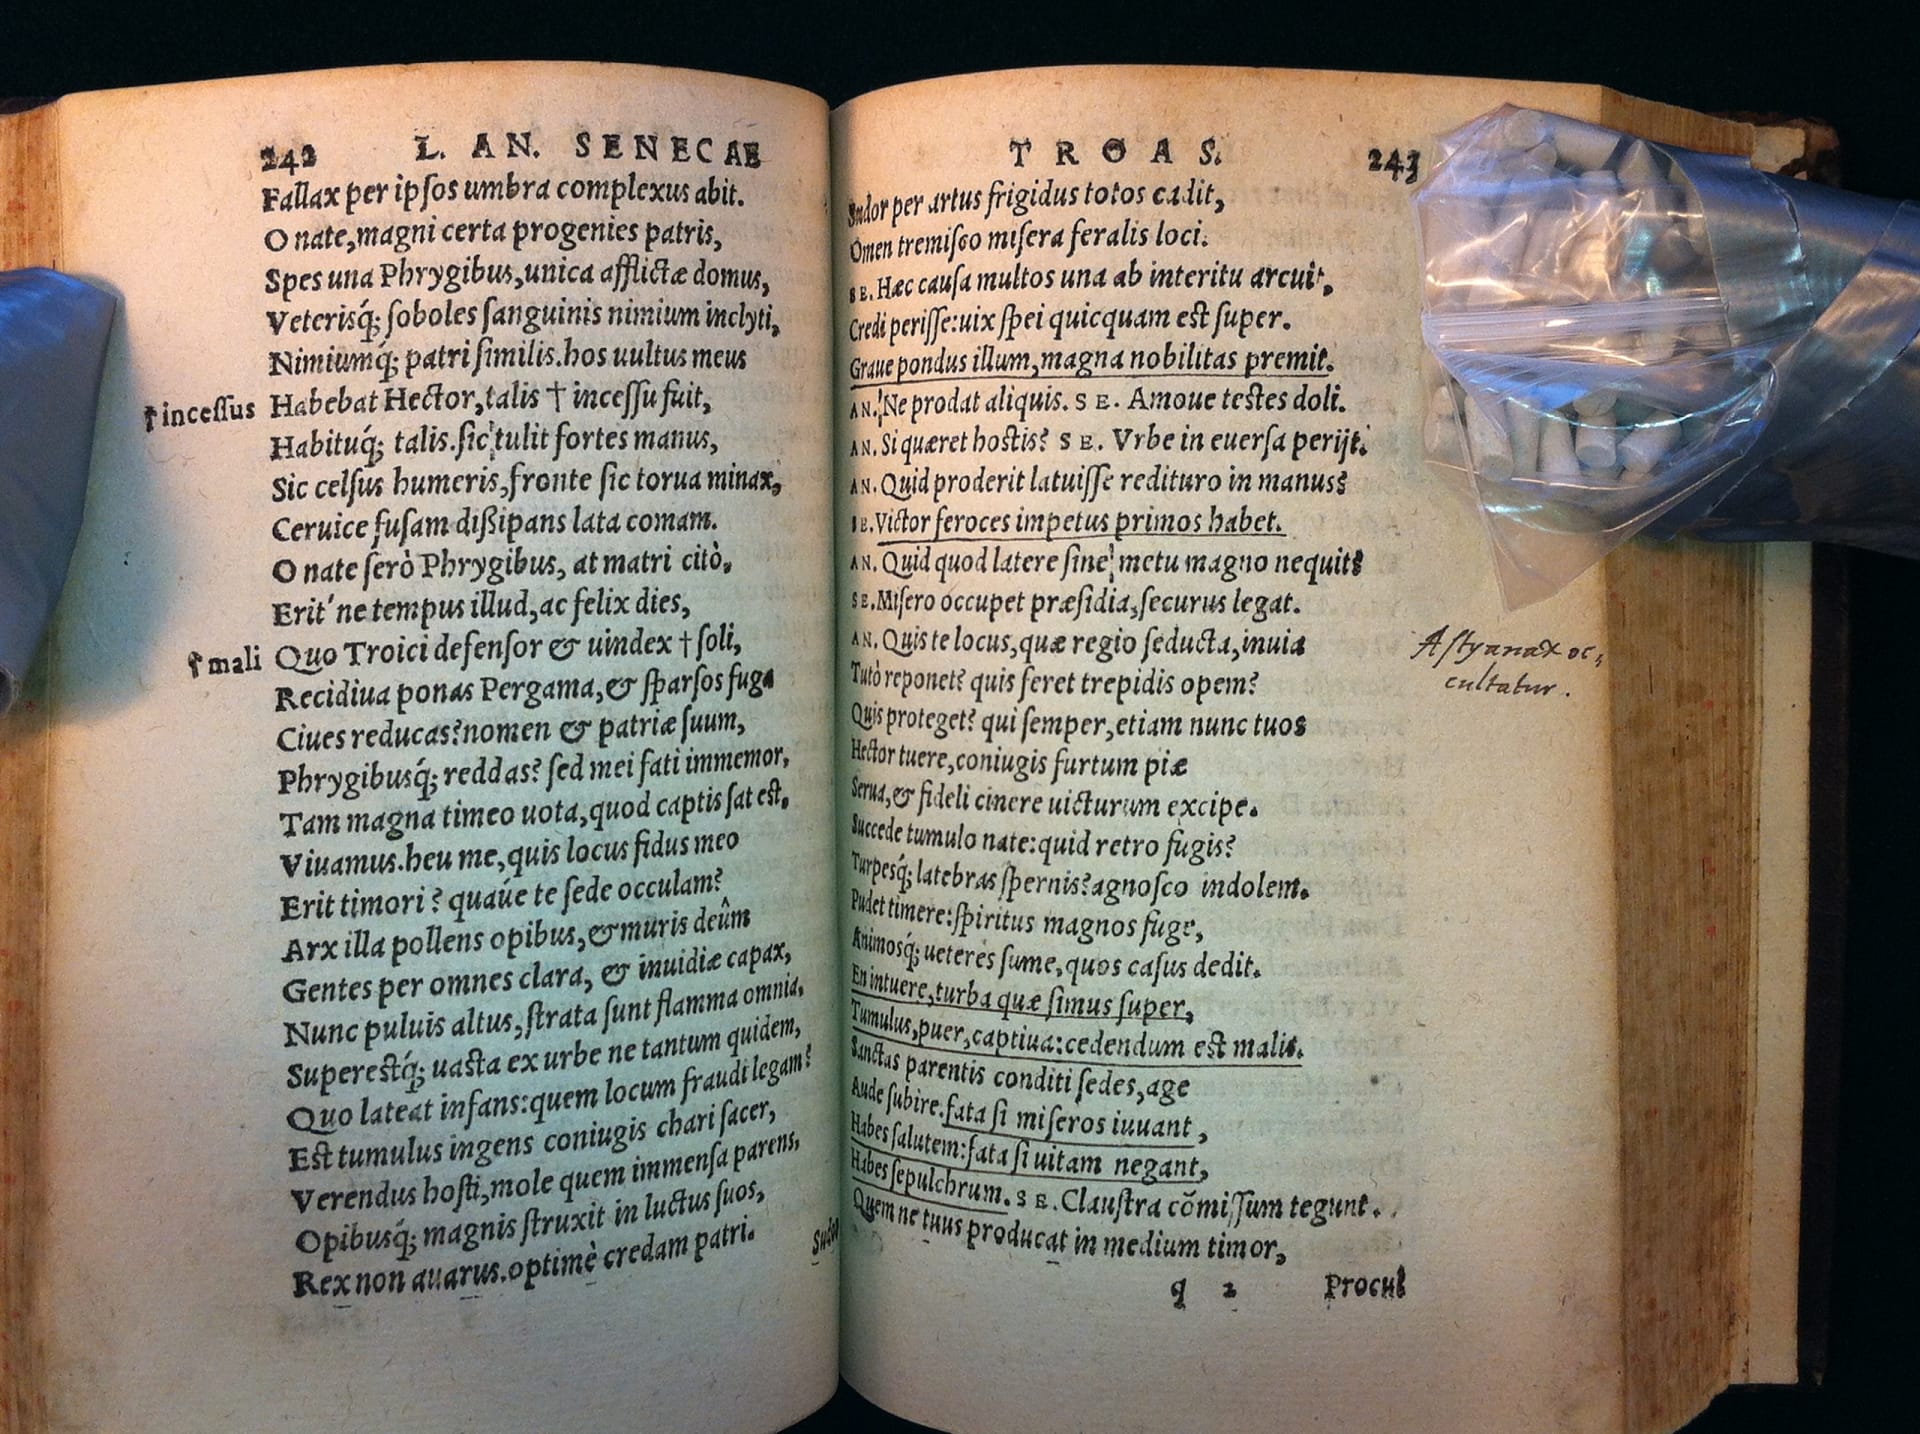 242 L. AN. SENECAE
Fallax per ipſos umbra complexus abit.
O nate, magni certa progenies patris,
Spes una Phrygibus, unica afflictæ domus,
Veterisq́; ſoboles ſanguinis nimium inclyti,
Nimiumq́; patri ſimilis. hos uultus meus
† inceſſus Habebat Hector, talis † inceſſu fuit,
Habituq́; talis. ſic tulit fortes manus,
Sic celſus humeris, fronte ſic torua minax,
Ceruice fuſam dißipans lata comam.
O nate ſerò Phrygibus, at matri citò,
Erit'ne tempus illud, ac felix dies,
† mali Quo Troici defenſor & uindex † ſoli,
Recidiua ponas Pergama, & ſparſos fuga
Ciues reducas? nomen & patriæ ſuum,
Phrygibusq́; reddas? ſed mei fati immemor,
Tam magna timeo uota, quod captis ſat eſt,
Viuamus. heu me, quis locus fidus meo
Erit timori? quaúe te ſede occulam?
Arx illa pollens opibus, & muris deûm
Gentes per omnes clara, & inuidiæ capax,
Nunc puluis altus, ſtrata ſunt flamma omnia,
Supereſtq́; uaſta ex urbe ne tantum quidem,
Quo lateat infans: quem locum fraudi legam?
Eſt tumulus ingens coniugis chari ſacer,
Verendus hoſti, mole quem immenſa parens,
Opibusq́; magnis ſtruxit in luctus ſuos,
Rex non auarus. optimè credam patri.
Sudor
TROAS. 243
Sudor per artus frigidus totos cadit,
Omen tremiſco miſera feralis loci.
SE. Hæc cauſa multos una ab interitu arcuit,
Credi periſſe: uix ſpei quicquam eſt ſuper.
Graue pondus illum, magna nobilitas premit.
AN. Ne prodat aliquis. SE. Amoue teſtes doli.
AN. Si quæret hoſtis? SE. Vrbe in euerſa perijt.
AN. Quid proderit latuiſſe redituro in manus?
SE. Victor feroces impetus primos habet.
AN. Quid quod latere ſine metu magno nequit?
SE. Miſero occupet præſidia, ſecurus legat.
AN. Quis te locus, quæ regio ſeducta, inuia
Tutò reponet? quis feret trepidis opem?
Quis proteget? qui ſemper, etiam nunc tuos
Hector tuere, coniugis furtum piæ
Serua, & fideli cinere uicturum excipe.
Succede tumulo nate: quid retro fugis?
Turpesq́; latebras ſpernis? agnoſco indolem.
Pudet timere: ſpiritus magnos fuge,
Animosq́; ueteres ſume, quos caſus dedit.
En intuere, turba quæ ſimus ſuper,
Tumulus, puer, captiua: cedendum eſt malis.
Sanctas parentis conditi ſedes, age
Aude ſubire. fata ſi miſeros iuuant,
Habes ſalutem: fata ſi uitam negant,
Habes ſepulchrum. SE. Clauſtra cõmiſſum tegunt.
Quem ne tuus producat in medium timor,
q 2 Procul
Aſtyanax oc-
cultatur.